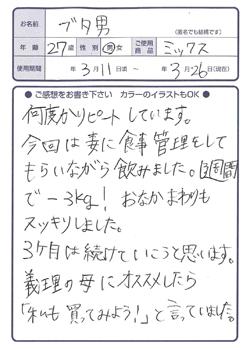 お名前 ブタ男 (匿名でも結構です)
年齢 27才 性別 男・女 ご使用商品 ミックス
使用期間 3月11日頃 ～ 3月26日(現在)
●ご感想をお書き下さい カラーのイラストもOK●
何度かリピートしています。
今回は妻に食事管理をして
もらいながら飲みました。1週間
で-3kg! おなかまわりも
スッキリしました。
3ヶ月は続けていこうと思います。
義理の母にオススメしたら
「私も買ってみよう!」と言っていました。